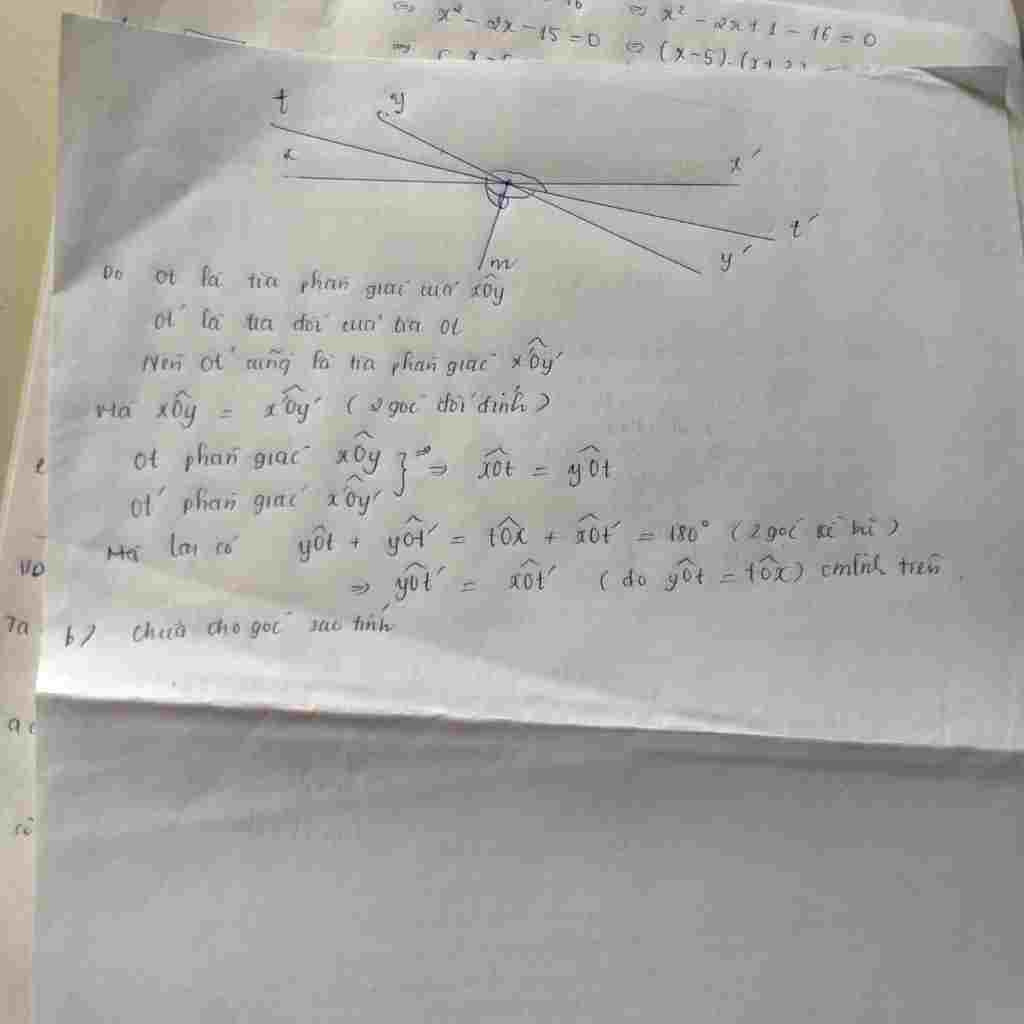 ⇔ x² - 2x - 15 = 0 ⇔ x² - 2x + 1 - 16 = 0
⇔ (x-5).(x+3)
t y
x x'
t'
y'
m
Do Ot là tia phân giác của xÔy
Ot' là tia đối của tia Ot
Nên Ot' cũng là tia phân giác x'Ôy'
Mà xÔy = x'Ôy' (2 góc đối đỉnh)
Ot phân giác xÔy
Ot' phân giác x'Ôy' } ⇒ xÔt = yÔt
Mà lại có yÔt + yÔt' = tÔx + xÔt' = 180° (2 góc kề bù)
⇒ yÔt' = xÔt' (do yÔt = tÔx) cmtrên
b) Chưa cho góc sao tính